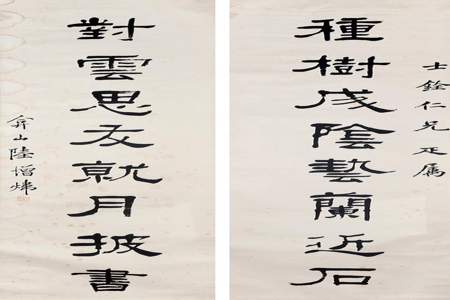 士銓仁兄疋属
種樹成陰藝蘭近石
對雲思友就月披書
弇山陸增煒